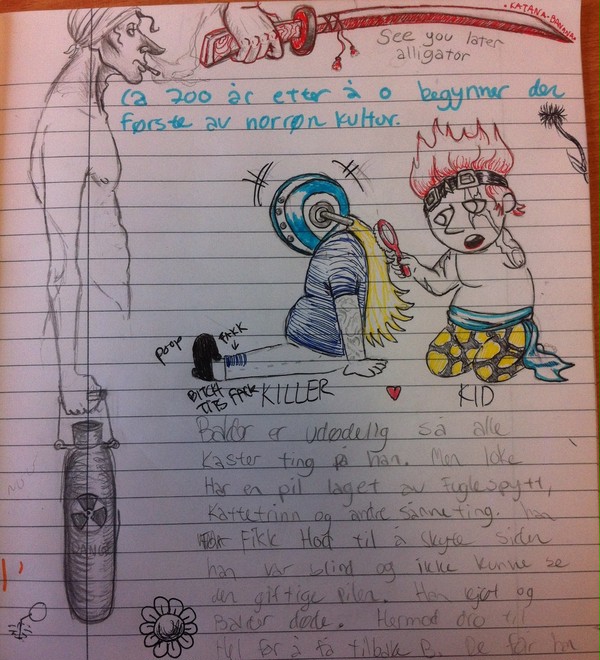 KATANA-BANANA
See you later
alligator
Ca 700 år etter å 0 begynner den
første av norrøn kultur.
poop
FAKK
BITCH
TITS FACK
KILLER ♥ KID
Baldur er udødelig så alle
Kaster ting på han. Men loke
Har en pil laget av Fuglespytt,
Kattetrinn og andre sånne ting. han
Fikk Hod til å skyte siden
han var blind og ikke kunne se
den giftige pilen. Han skjøt og
Baldur døde. Hermod dro til
Hel for å få tilbake B. De får han